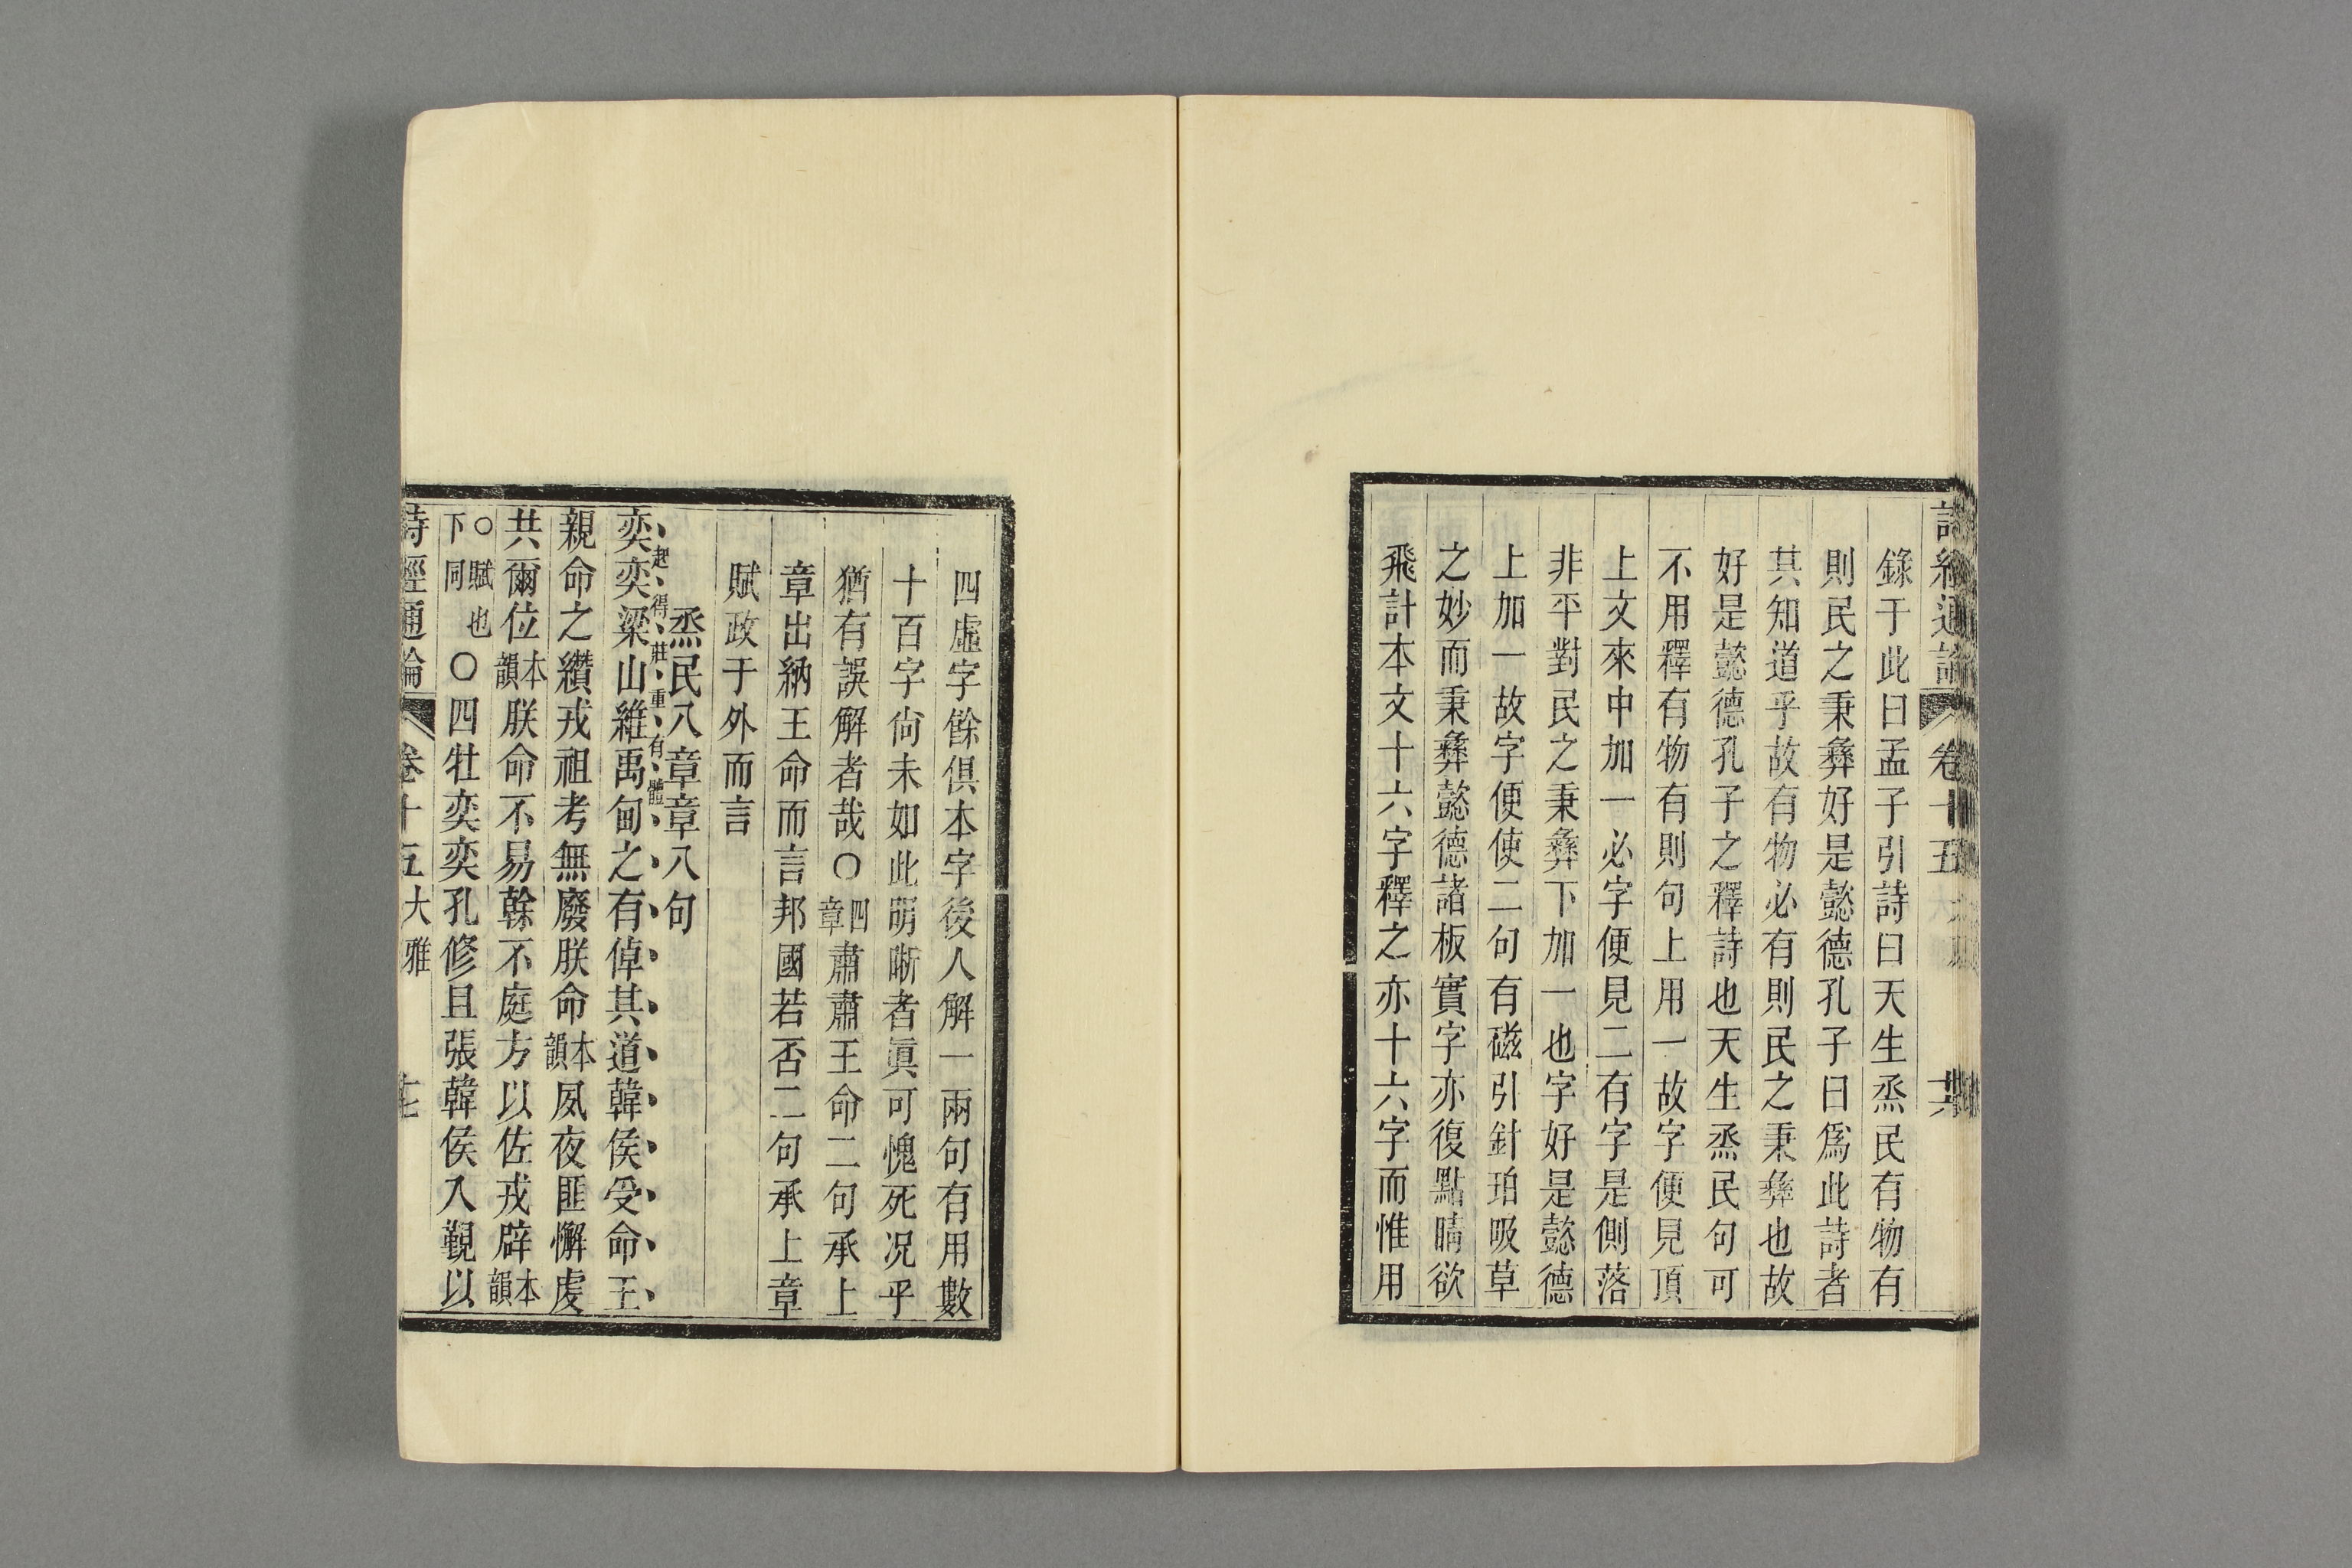 詩經通論 卷十五 大雅
錄于此曰孟子引詩曰天生烝民有物有
則民之秉彝好是懿德孔子曰爲此詩者
其知道乎故有物必有則民之秉彝也故
好是懿德孔子之釋詩也天生烝民句可
不用釋有物有則句上用一故字便見頂
上文來中加一必字便見二有字是側落
非平對民之秉彝下加一也字好是懿德
上加一故字便使二句有磁引針珀吸草
之妙而秉彝懿德諸板實字亦復點睛欲
飛計本文十六字釋之亦十六字而惟用
四虛字餘俱本字後人解一兩句有用數
十百字尙未如此明晰者眞可愧死况乎
猶有誤解者哉〇四章肅肅王命二句承上
章出納王命而言邦國若否二句承上章
賦政于外而言
烝民八章章八句
起得莊重有體
奕奕梁山維禹甸之有倬其道韓侯受命王
親命之纘戎祖考無廢朕命本韻夙夜匪懈虔
共爾位本韻朕命不易榦不庭方以佐戎辟本韻
〇賦也下同〇四牡奕奕孔修且張韓侯入覲以
詩經通論 卷十五大雅